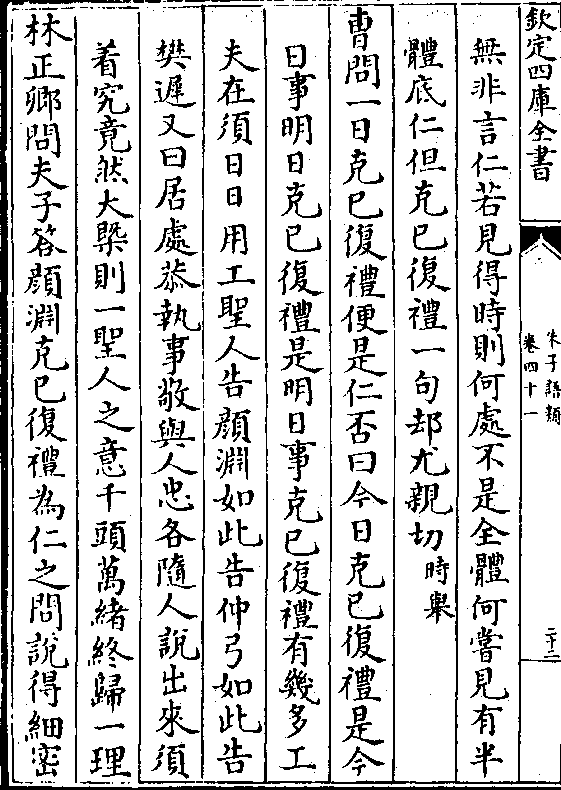 欽定四庫全書
朱子語類
卷四十一
二十三
無非言仁若見得時則何處不是全體何嘗見有半
體底仁但克已復禮一句却尤親切時舉
曹問一日克已復禮便是仁否曰今日克已復禮是今
日事明日克已復禮是明日事克已復禮有幾多工
夫在須日日用工聖人告顔淵如此告仲弓如此告
樊遲又曰居處恭執事敬與人忠各隨人說出來須
着究竟然大槩則一聖人之意千頭萬緒終歸一理
林正卿問夫子答顔淵克已復禮為仁之問說得細密